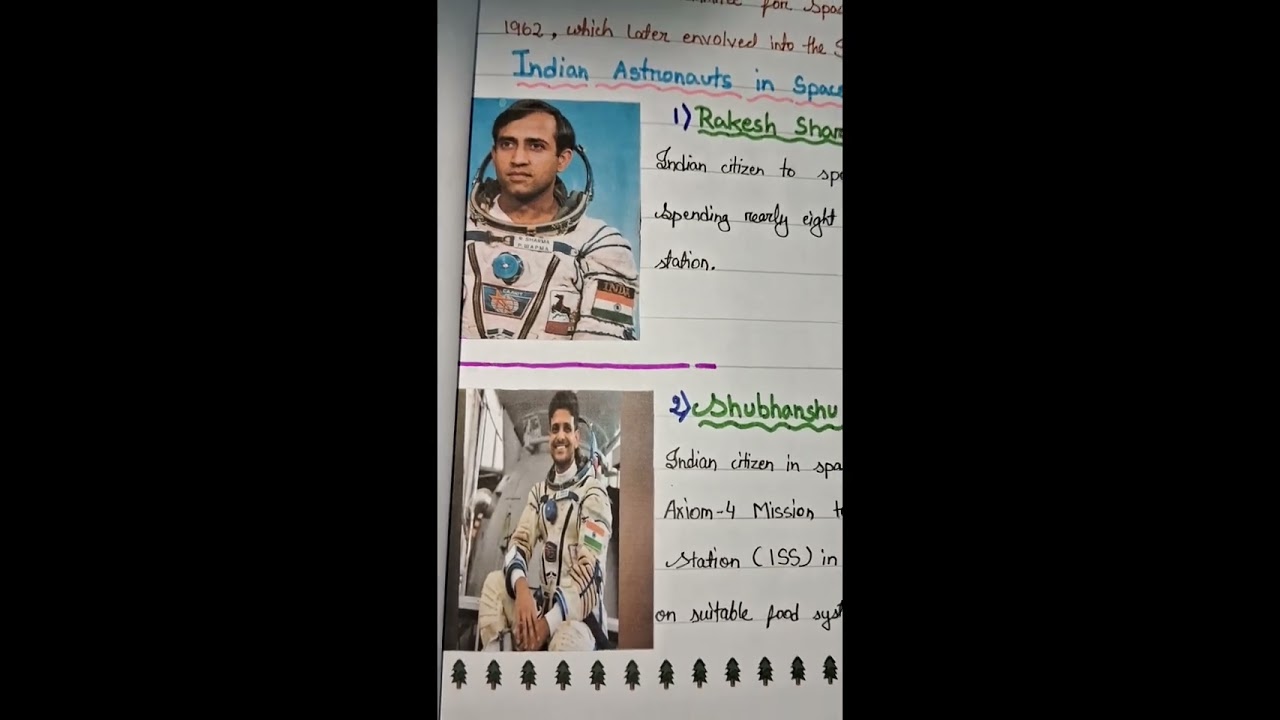 for Spac
1962, which later envolved into the S
Indian Astronauts in Space
1) Rakesh Shar
Indian citizen to sp
spending nearly eight
station.
R. SHARMA
Р. ШАРМА
INDIA
2) Shubhanshu
Indian citizen in spa
Axiom-4 Mission t
station (ISS) in
on suitable food syst